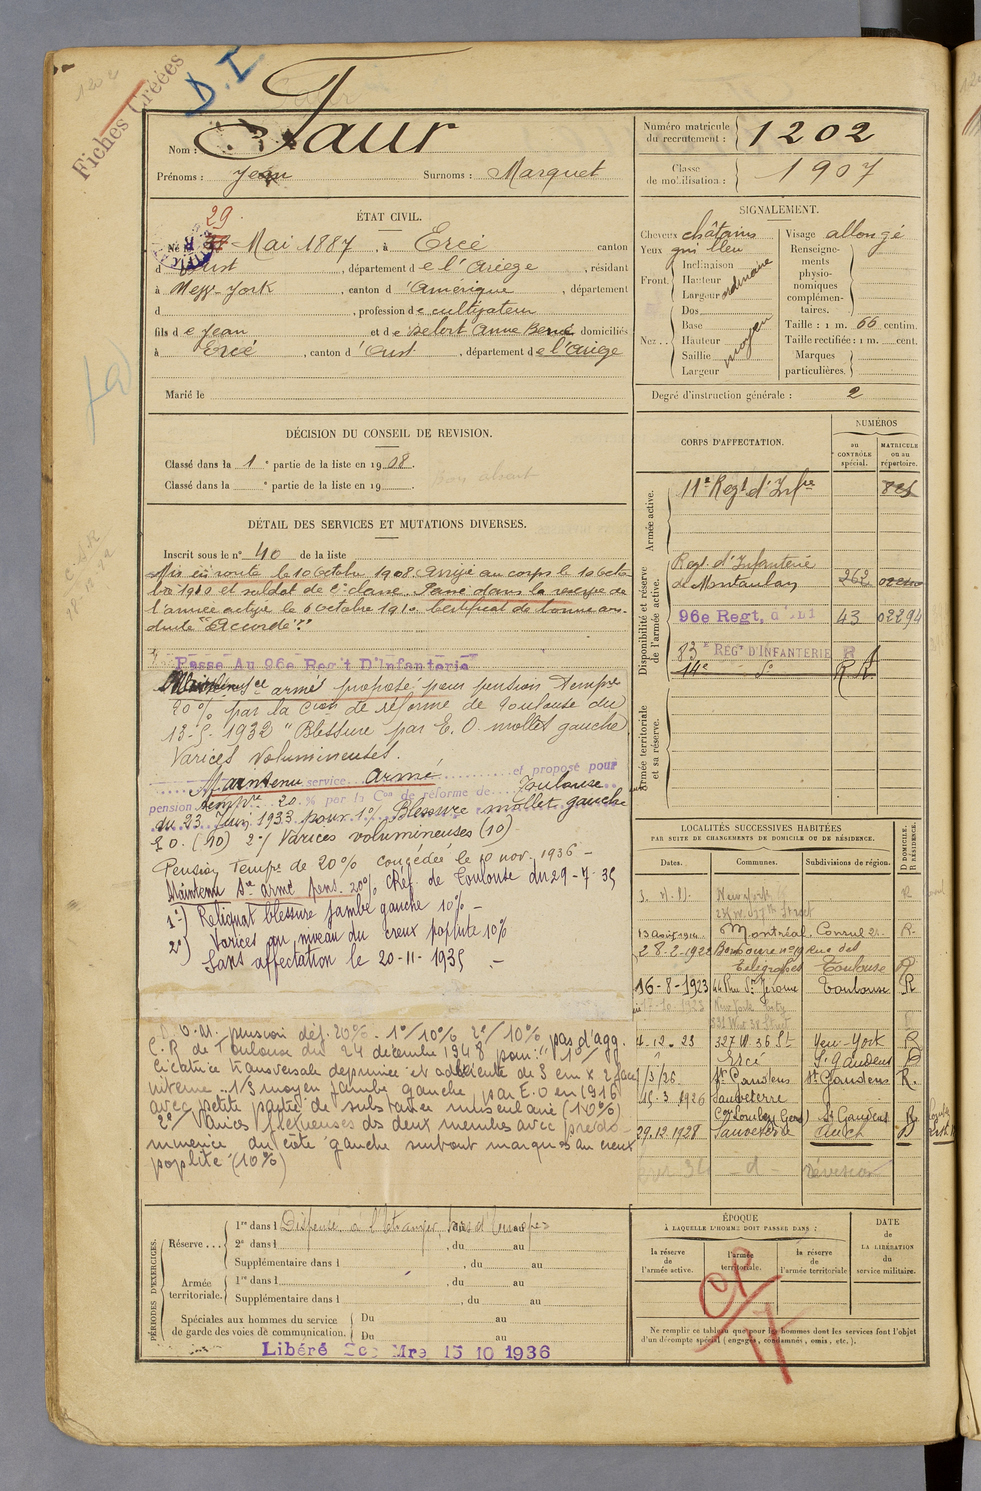 Fiches Créées
D.I.
Nom : Faur
Prénoms : Jean Surnoms : Marquet
Numéro matricule du recrutement : 1202
Classe de mobilisation : 1907
ÉTAT CIVIL.
29
Né le Mai 1887, à Ercé canton
d'Oust, département de l'Ariège, résidant
à New-York, canton d'Amérique, département
d , profession de cultivateur
fils de Jean et de Delort Anne domiciliés
à Ercé, canton d'Oust, département de l'Ariège
Marié le
SIGNALEMENT.
Cheveux châtains Visage allongé
Yeux gris bleu
Front. Inclinaison Hauteur Largeur ordinaire
Nez .. Dos Base Hauteur Saillie Largeur moyen
Renseignements physionomiques complémentaires.
Taille : 1 m. 66 centim.
Taille rectifiée : 1 m. cent.
Marques particulières.
Degré d'instruction générale : 2
DÉCISION DU CONSEIL DE REVISION.
Classé dans la 1e partie de la liste en 1908.
Classé dans la e partie de la liste en 19 .
Bon absent
DÉTAIL DES SERVICES ET MUTATIONS DIVERSES.
Inscrit sous le n° 40 de la liste
Mis en route le 10 Octobre 1908 Arrivé au corps le 10 octo
bre et soldat de 2e classe. Passé dans la réserve de
l'armée active le 6 Octobre 1910. Certificat de bonne con-
duite "Accordé".
Passe Au 96e Reg't D'Infanterie
armé proposé pour pension Tempre
20% par la Cion de réforme de Toulouse du
13-5-1932 "Blessure par E.O. mollet gauche
Varices volumineuses.
Maintenu service Armé et proposé pour
pension tempre 20 % par la Con de réforme de Toulouse
du 23 Juin 1933 pour 1°/ Blessure mollet gauche
E.O. (10) 2°/ Varices volumineuses (10)
Pension Tempre de 20% concédée le 10 nov. 1936 -
Maintenu Sce armé pens. 20% C Réf. de Toulouse du 29-7-35
1°) Reliquat blessure jambe gauche 10% -
2°) Varices au niveau du creux poplité 10%
Sans affectation le 20-11-1935 .-
pension déf. 20% 1°/10% 2°/10% pas d'agg.
C.R de Toulouse du 24 décembre 1948 pour: "1°/
Cicatrice transversale déprimée et adhérente de 3 cm x 2 face
interne 1/3 moyen jambe gauche par E.O en (1916)
avec petite partie de substance musculaire (10%)
2°/ Varices flexueuses des deux membres avec prédo-
minence du côté gauche surtout marquées au creux
poplité (10%)
CORPS D'AFFECTATION.
NUMÉROS
au CONTRÔLE spécial.
MATRICULE ou au répertoire.
Armée active.
11e Regt d'Infrie
Disponibilité et réserve de l'armée active.
Regt. d'Infanterie
de Montauban 262
96e Regt. d'Inf 43 02294
83e REGt D'INFANTERIE
14e do
Armée territoriale et sa réserve.
LOCALITÉS SUCCESSIVES HABITÉES
PAR SUITE DE CHANGEMENTS DE DOMICILE OU DE RÉSIDENCE.
Dates. Communes. Subdivisions de région. D DOMICILE. R RÉSIDENCE.
New York R
13 Août 1914 Montréal Consul R.
28-2-1922 rue des
Toulouse R
16-8-1923 44 Rue St Jérome Toulouse R
17-10-1923 New York City
331 West 38 Street
4-12-23 327 W. 36 St New-York R
Ercé St Gaudens D
1/3/26 St Gaudens St Gaudens R.
15.3.1926 Sauveterre
(Gers) St Gaudens R
29.12.1928 Sauveterre Auch D
PÉRIODES D'EXERCICES.
Réserve ... 1re dans l Dispensé à l'étranger, hors d'Europe
2e dans l , du au
Supplémentaire dans l , du au
Armée territoriale. 1re dans l , du au
Supplémentaire dans l , du au
Spéciales aux hommes du service de garde des voies de communication. Du au
Du au
Libéré Mre 15 10 1936
ÉPOQUE
À LAQUELLE L'HOMME DOIT PASSER DANS :
la réserve de l'armée active.
l'armée territoriale.
la réserve de l'armée territoriale
DATE de LA LIBÉRATION du service militaire.
Ne remplir ce tableau que pour les hommes dont les services font l'objet
d'un décompte spécial (engagés, condamnés, omis, etc.).